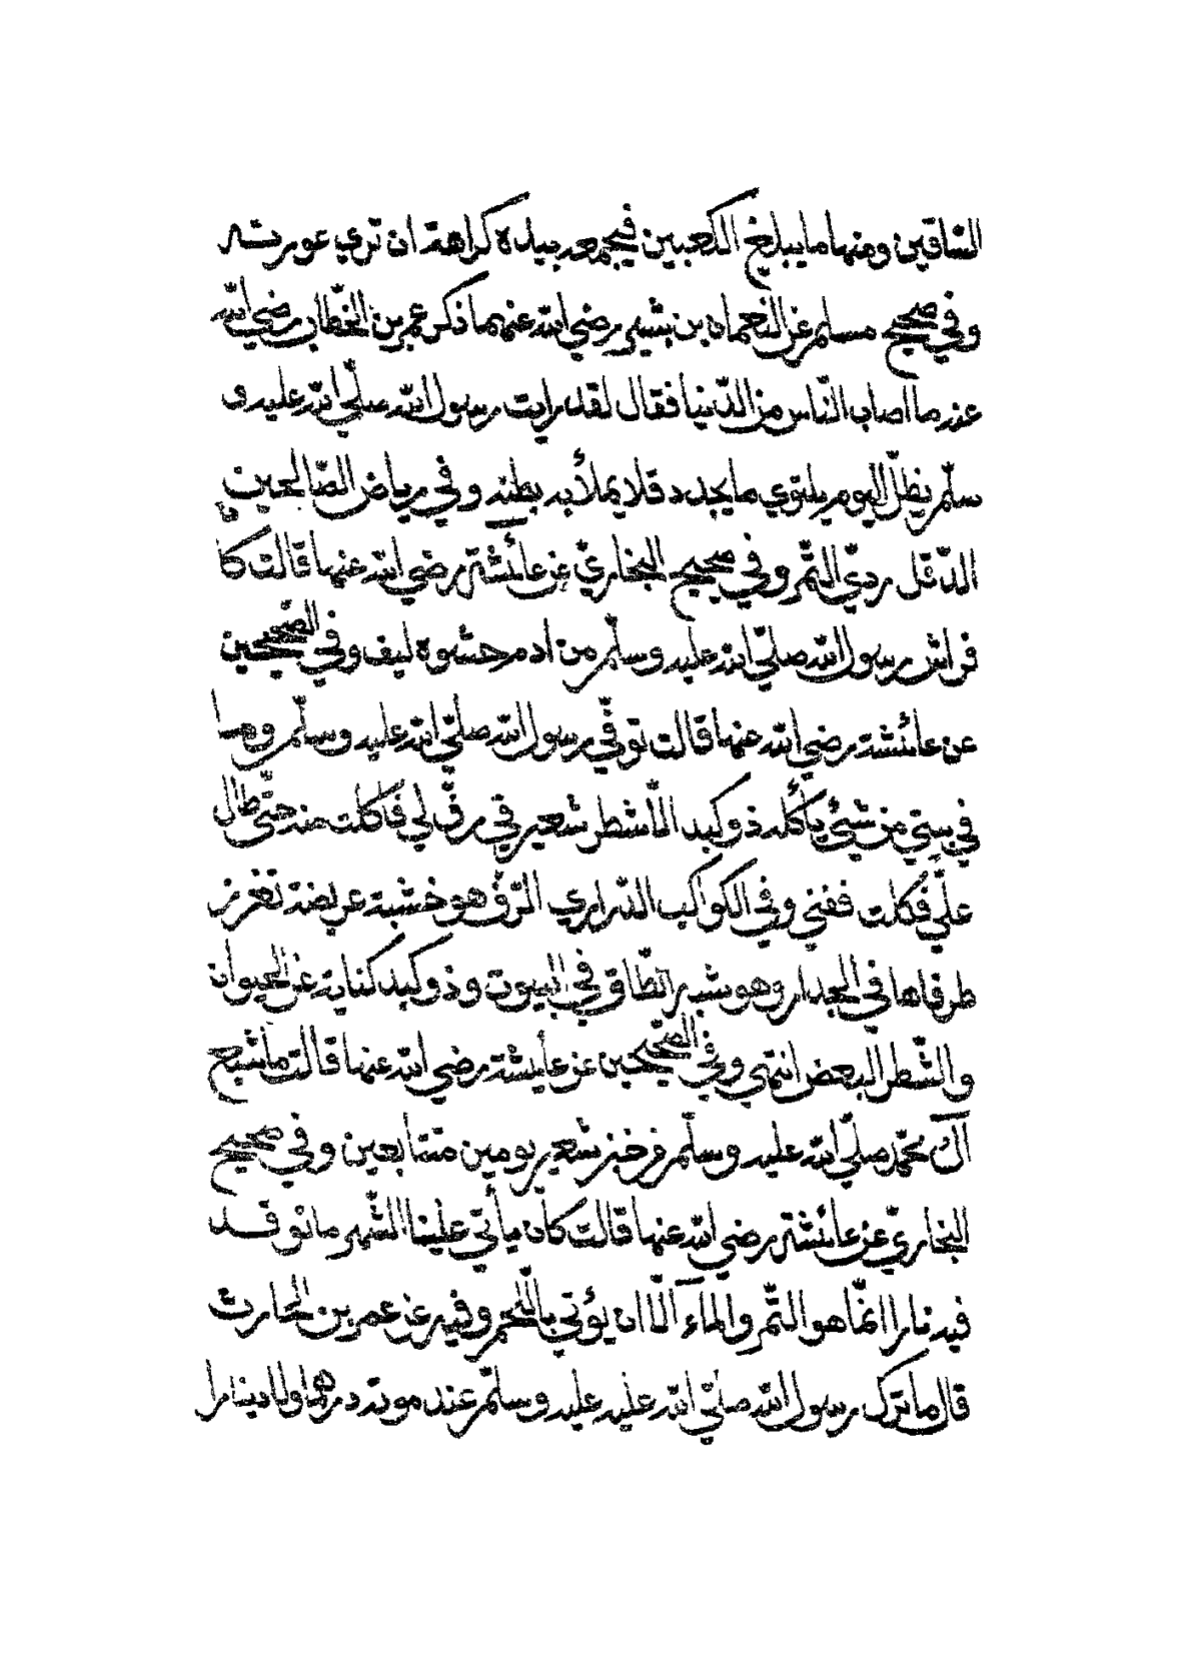 الساقين ومنها ما يبلغ الكعبين فيجمعه بيده كراهة ان تري عورته
وفي صحيح مسلم عن النعمان بن بشير رضي الله عنهما ذكر عمر بن الخطاب رضي الله
عنه ما اصاب الناس من الدّنيا فقال لقد رايت رسول الله صلّي الله عليه و
سلّم يظلّ اليوم يلتوي ما يجد دقلا يملأ به بطنه وفي رياض الصّالحين
الدّقل رديّ التّمر وفي صحيح البخاريّ عن عائشة رضي الله عنها قالت كا
فراش رسول الله صلّي الله عليه وسلّم من ادم حشوه ليف وفي الصّحيحين
عن عائشة رضي الله عنها قالت توفّي رسول الله صلّي الله عليه وسلّم وما
في بيتي من شيئ يأكله ذو كبد الّا شطر شعير في رفّ لي فاكلت منه حتّي طال
عليّ فكلت ففني وفي الكواكب الدّراري الرّفّ هو خشبة عريضة تغرز
طرفاها في الجدار وهو شبه الطّاق في البيوت وذو كبد كناية عن الحيوان
والشّطر البعض انتهي وفي الصّحيحين عن عايشة رضي الله عنها قالت ما شبع
آل محمّد صلّي الله عليه وسلّم من خبز شعير يومين متتابعين وفي صحيح
البخاريّ عن عائشة رضي الله عنها قالت كان يأتي علينا الشّهر ما نوقد
فيه نارا انّما هو التّمر والماء آلّا ان يؤتي باللّحم وفيه عن عمر بن الحارث
قال ما ترك رسول الله صلّي الله عليه عليه وسلّم عند موته درهما ولا دينارا